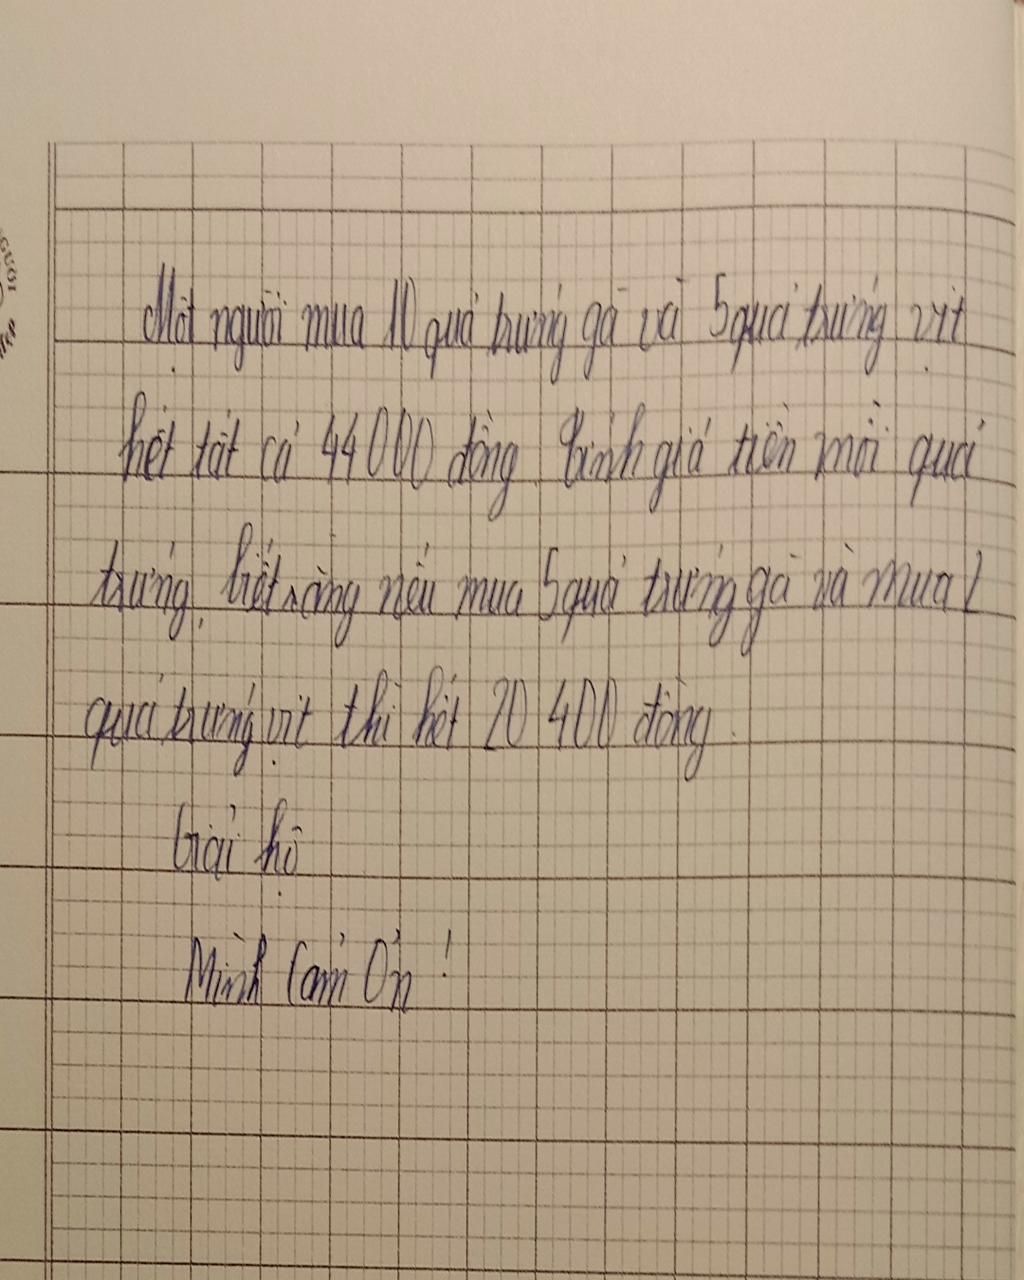 GƯỜI
Một người mua 10 quả trứng gà và 5 quả trứng vịt
hết tất cả 44000 đồng. Tính giá tiền mỗi quả
trứng, biết rằng nếu mua 5 quả trứng gà và mua 2
quả trứng vịt thì hết 20 400 đồng.
Giải hộ
Mình Cảm Ơn !